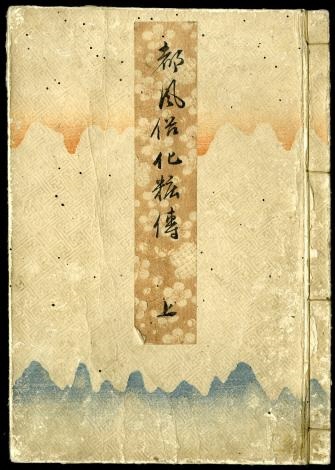 都風俗化粧傳
上